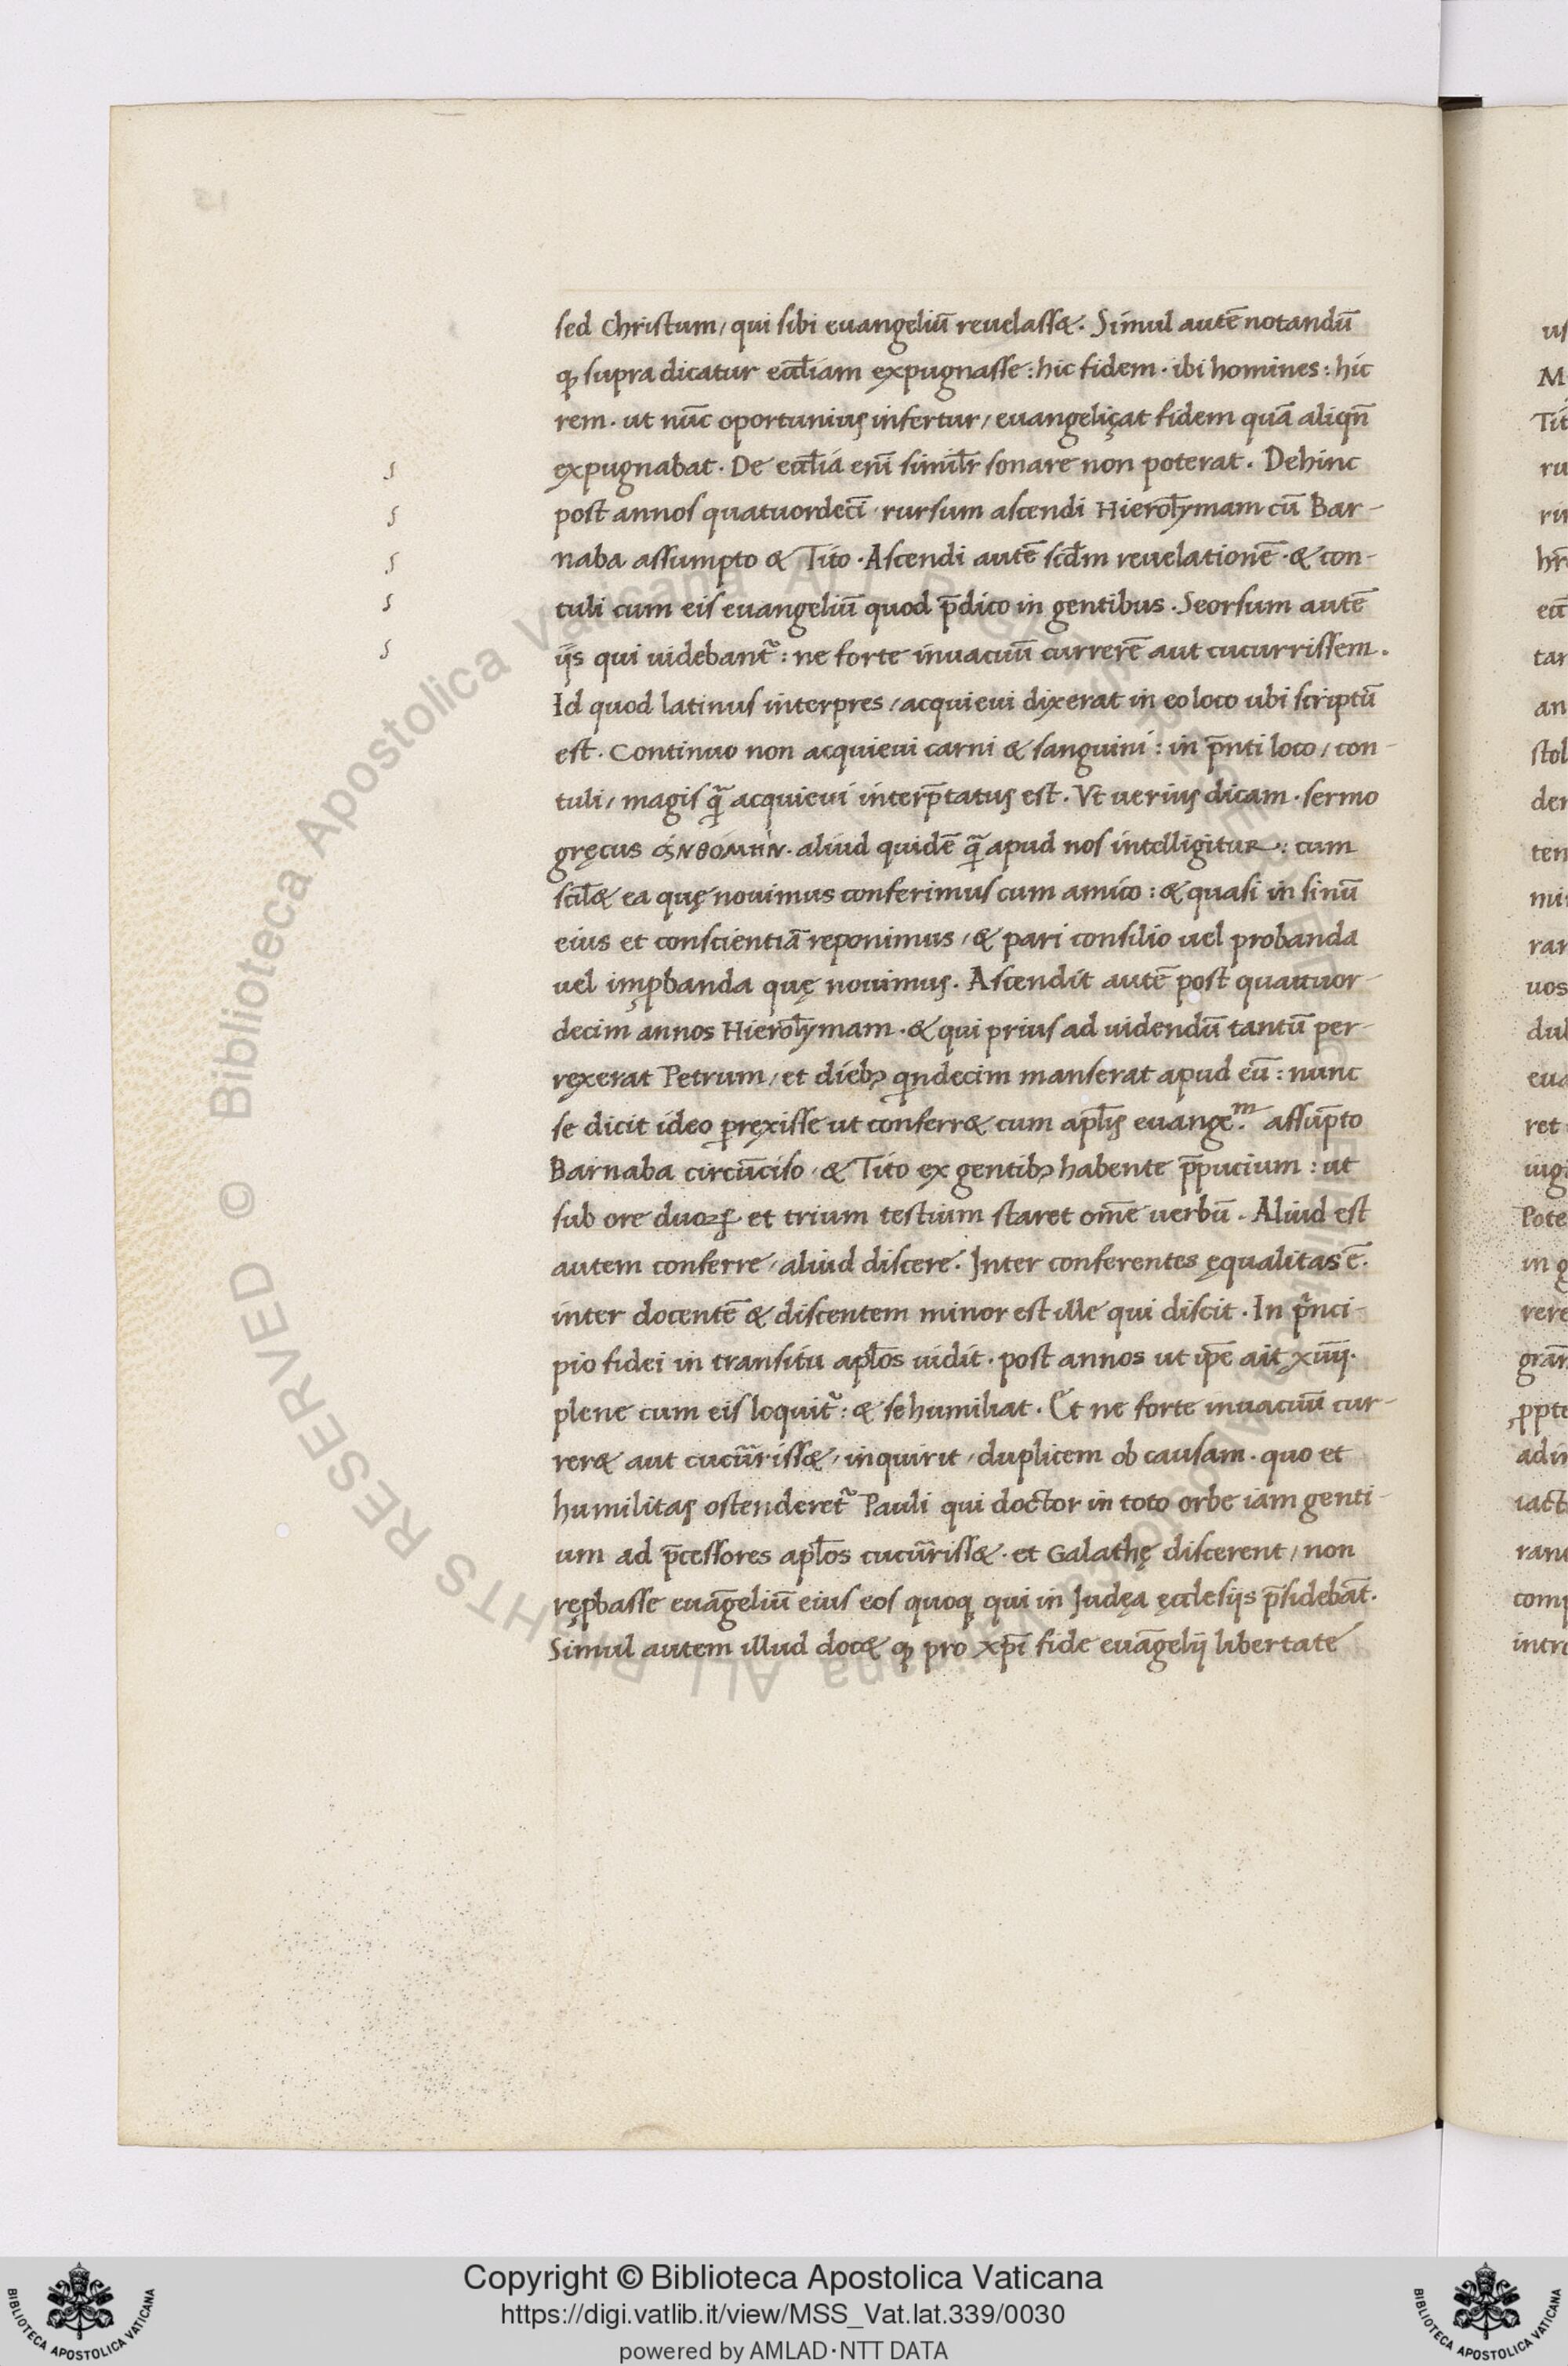 sed Christum, qui sibi euangeliū reuelass&. Simul autē notandū
ꝙ supra dicatur eccl̄iam expugnasse: hic fidem. ibi homines: hic
rem. ut nūc oportunius infertur, euangeliçat fidem quā aliqn̄
expugnabat. De eccl̄ia enī simil̄r sonare non poterat. Dehinc
post annos quatuordecī rursum ascendi Hierosol̄ymam cū Bar-
naba assumpto & Tito. Ascendi autē scd̄m reuelationē. & con-
tuli cum eis euangeliū quod p̄dico in gentibus. Seorsum autē
ijs qui uidebant᷑: ne forte inuacuū currerē aut cucurrissem.
Id quod latinus interpres, acquieui dixerat in eo loco ubi scriptū
est. Continuo non acquieui carni & sanguini: in p̄nti loco, con-
tuli, magis ꝗ̃ acquieui interp̄tatus est. Vt uerius dicam. sermo
gręcus . aliud quidē ꝗ̃ apud nos intelligitur: cum
scil& ea quę nouimus conferimus cum amico: & quasi in sinū
eius et conscientiā reponimus, & pari consilio uel probanda
uel imꝓbanda quę nouimus. Ascendit autē post quatuor-
decim annos Hierosol̄ymam. & qui prius ad uidendū tantū per-
rexerat Petrum, et diebꝫ qndecim manserat apud eū: nunc
se dicit ideo ꝑrexisse ut conferr& cum apl̄is euange.m assūpto
Barnaba circūciso, & Tito ex gentibꝫ habente p̄pucium: ut
sub ore duoꝝ et trium testium staret om̄e uerbū. Aliud est
autem conferre, aliud discere. Inter conferentes ęqualitas ē.
inter docentē & discentem minor est ille qui discit. In pͥnci-
pio fidei in transitu apl̄os uidit. post annos ut ip̄e ait xiiij.
plene cum eis loquit᷑: & se humiliat. Et ne forte inuacuū cur-
rer& aut cucur̄riss&, inquirit, duplicem ob causam. quo et
humilitas ostenderet᷑ Pauli qui doctor in toto orbe iam genti-
um ad p̄cessores apl̄os cucur̄riss&. et Galathę discerent, non
reꝓbasse euāgeliū eius eos quoqꝫ qui in Judęa ęcclesijs p̄sidebāt.
Simul autem illud doc& ꝙ pro xp̄i fide euāgelij libertate
us
M
Tit
ru
ru
hr̄
ecc
tar
an
stol
der
ten
nu
rar
uos
dul
eua
ret
iugi
Pote
in g
rere
grā
ꝓpte
adu
iact
rand
comp
intro
© Biblioteca Apostolica Vaticana ALL RIGHTS RESERVED
Copyright © Biblioteca Apostolica Vaticana
https://digi.vatlib.it/view/MSS_Vat.lat.339/0030
powered by AMLAD·NTT DATA
BIBLIOTECA APOSTOLICA VATICANA
BIBLIOTECA APOSTOLICA VATICANA